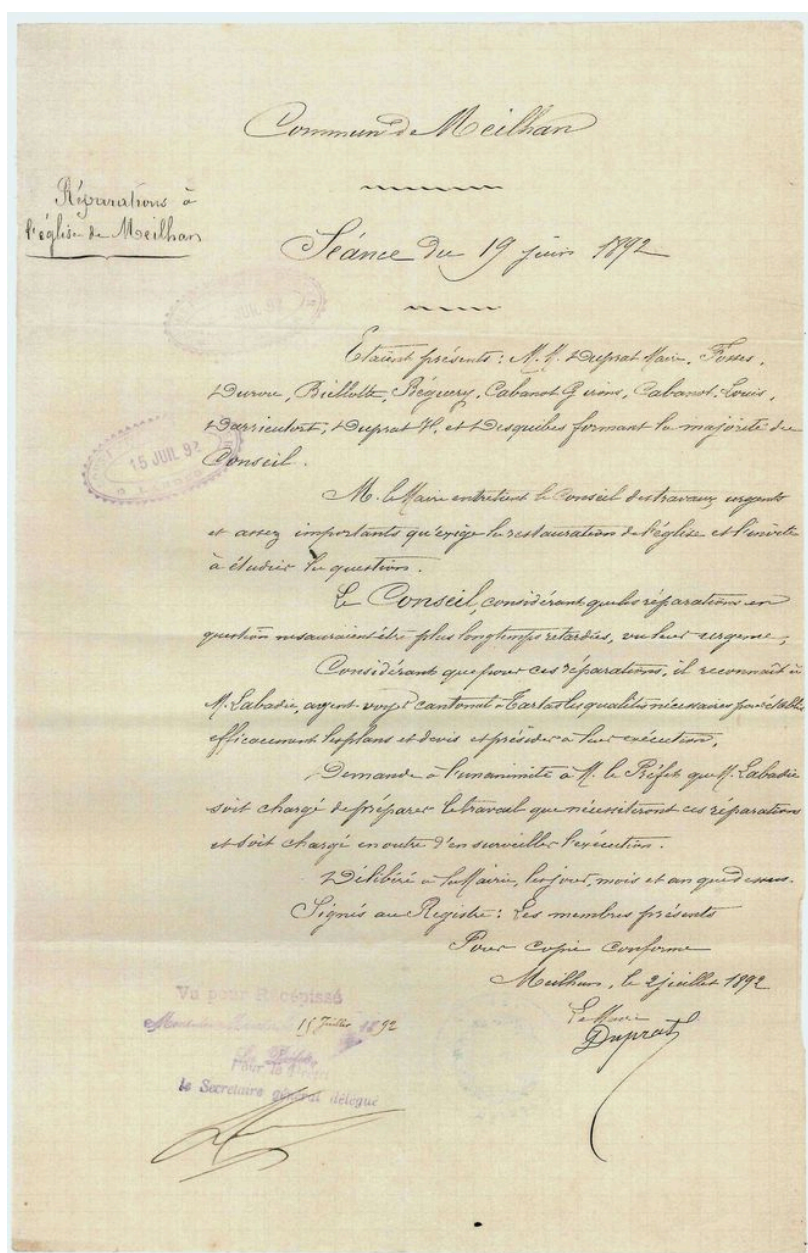 Commune de Meilhan
Réparations à
l'église de Meilhan
Séance du 19 juin 1892
JUIL 92
Etaient présents : M.M. Duprat Maire, Fosses,
Durou, Biellotte, Béguery, Cabanot Girons, Cabanot Louis,
Darrieutort, Duprat H. et Desquibes formant la majorité du
Conseil.
15 JUIL 92
M. le Maire entretient le Conseil des travaux urgents
et assez importants qu'exige la restauration de l'église et l'invite
à étudier la question.
Le Conseil, considérant que les réparations en
question ne sauraient être plus longtemps retardées, vu leur urgence,
Considérant que pour ces réparations, il reconnaît à
M. Labadie, agent voyer cantonal à Tartas les qualités nécessaires pour établir
efficacement les plans et devis et présider à leur exécution,
Demande à l'unanimité à M. le Préfet que M. Labadie
soit chargé de préparer le travail que nécessiteront ces réparations
et soit chargé en outre d'en surveiller l'exécution.
Délibéré à la Mairie, les jour, mois et an que dessus.
Signés au Registre : Les membres présents
Pour copie conforme
Meilhan, le 2 juillet 1892
Le Maire
Duprat
Vu pour Récépissé
15 Juillet 1892
Pour le Préfet
le Secrétaire général délégué